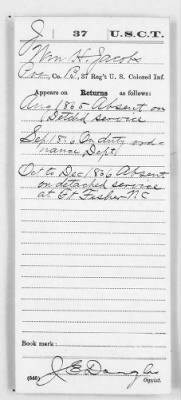 J | 37 | U.S.C.T.
Wm H. Jacobs
Pvt, Co. B, 37 Reg't U. S. Colored Inf.
Appears on Returns as follows:
Aug 1865 Absent on
Detchd service
Sep 1866 On duty ord-
nance Dept.
Oct to Dec 1866 Absent
on detached service
at Ft Fisher N C
Book mark:
(546)
J. E. Douglas
Copyist.